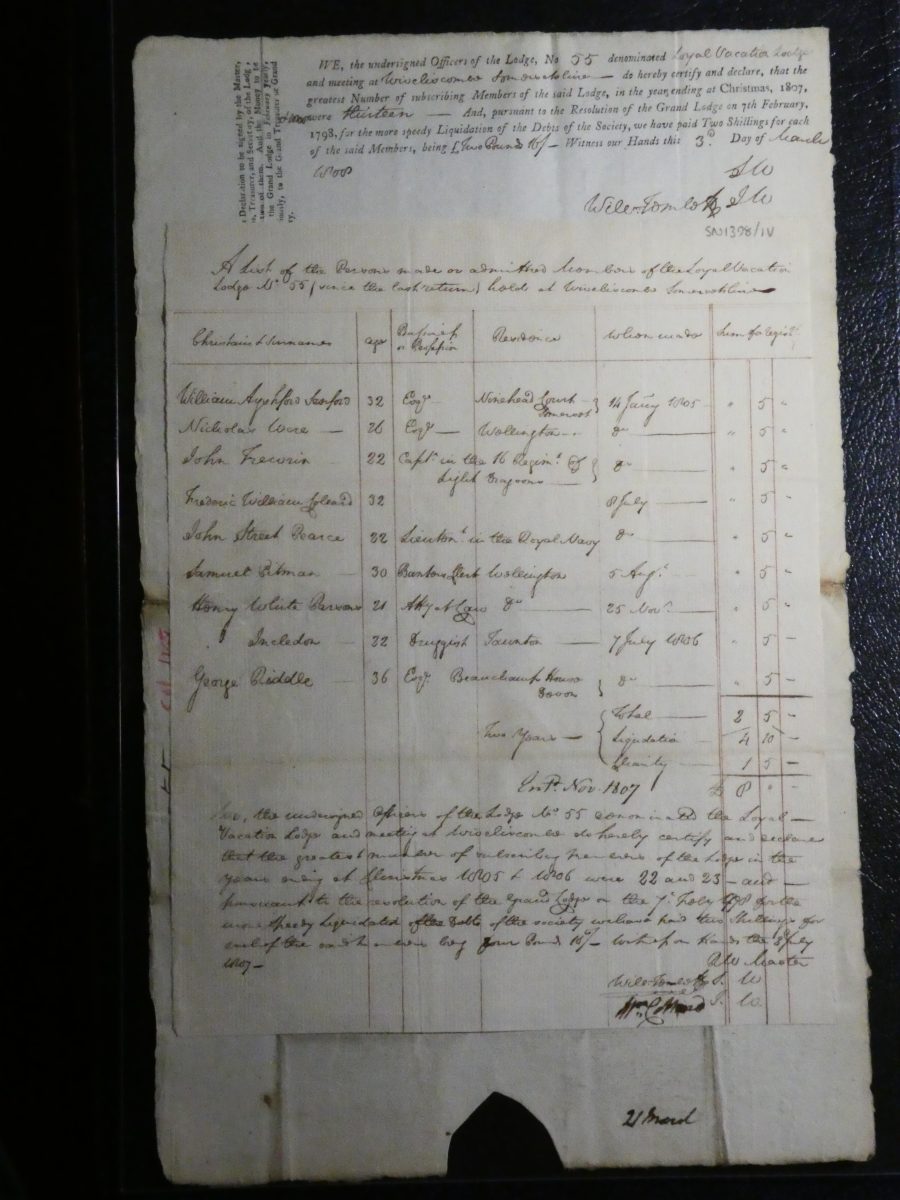 Declaration to be signed by the Master,
Treasurer, and Secretary, of the Lodge,
of them. And the Money to be
the Grand Lodge in February Yearly,
to the Grand Treasurer or Grand
WE, the undersigned Officers of the Lodge, No 55 denominated Loyal Vacation Lodge
and meeting at Wiveliscombe Somersetshire — do hereby certify and declare, that the
greatest Number of subscribing Members of the said Lodge, in the year, ending at Christmas, 1807,
were thirteen — And, pursuant to the Resolution of the Grand Lodge on 7th February,
1798, for the more speedy Liquidation of the Debts of the Society, we have paid Two Shillings for each
of the said Members, being £ Two Pound 16/- Witness our Hands this 3d. Day of March
1808
S W
J W
SN1328/IV
A List of the Persons made or admitted Members of the Loyal Vacation
Lodge No. 55 (since the last return) holds at Wiveliscombe Somersetshire
Christain & Surnames age Business or Profession Residence When made Sum for regist.
William Ayshford Sanford 32 Esqr. Court Somerset } 14 Jany 1805 " 5 "
Nicholas Were — 26 Esqr — Wellington do — " 5 "
John 22 Captn. in the 16 Regimt. of Light Dragoons } do — " 5 "
Frederic William 32 8 July — " 5 "
John Street Pearce 22 Lieutent. in the Royal Navy do — " 5 "
Samuel Pitman 30 Bankers Clerk Wellington 5 Augt. " 5 "
Henry White Parsons 21 Atty at Law do — 25 Novr. " 5 "
Incledon — 22 Druggist Taunton — 7 July 1806 " 5 —
George Biddle — 36 Esqr. Beauchamp House Devon } do — " 5 —
Total — 2 5 —
Two Years — { Liquidation 4 10 —
Charity — 1 5 —
Entd. Nov. 1807 £ 8 " —
We, the undersigned Officers of the Lodge No. 55 denominated the Loyal —
Vacation Lodge and meeting at Wiveliscombe do hereby certify and declare
that the greatest number of subscribing members of the Lodge in the
years ending at Christmas 1805 & 1806 were 22 and 23 — and —
pursuant to the resolution of the Grand Lodge on the 7. Feby 1798 for the
more speedy Liquidated of the Debts of the society we have paid two Shillings for
each of the said members being four Pound 10/- Witness our Hands the July
1807 —
R W Master
S. W
J. W
21